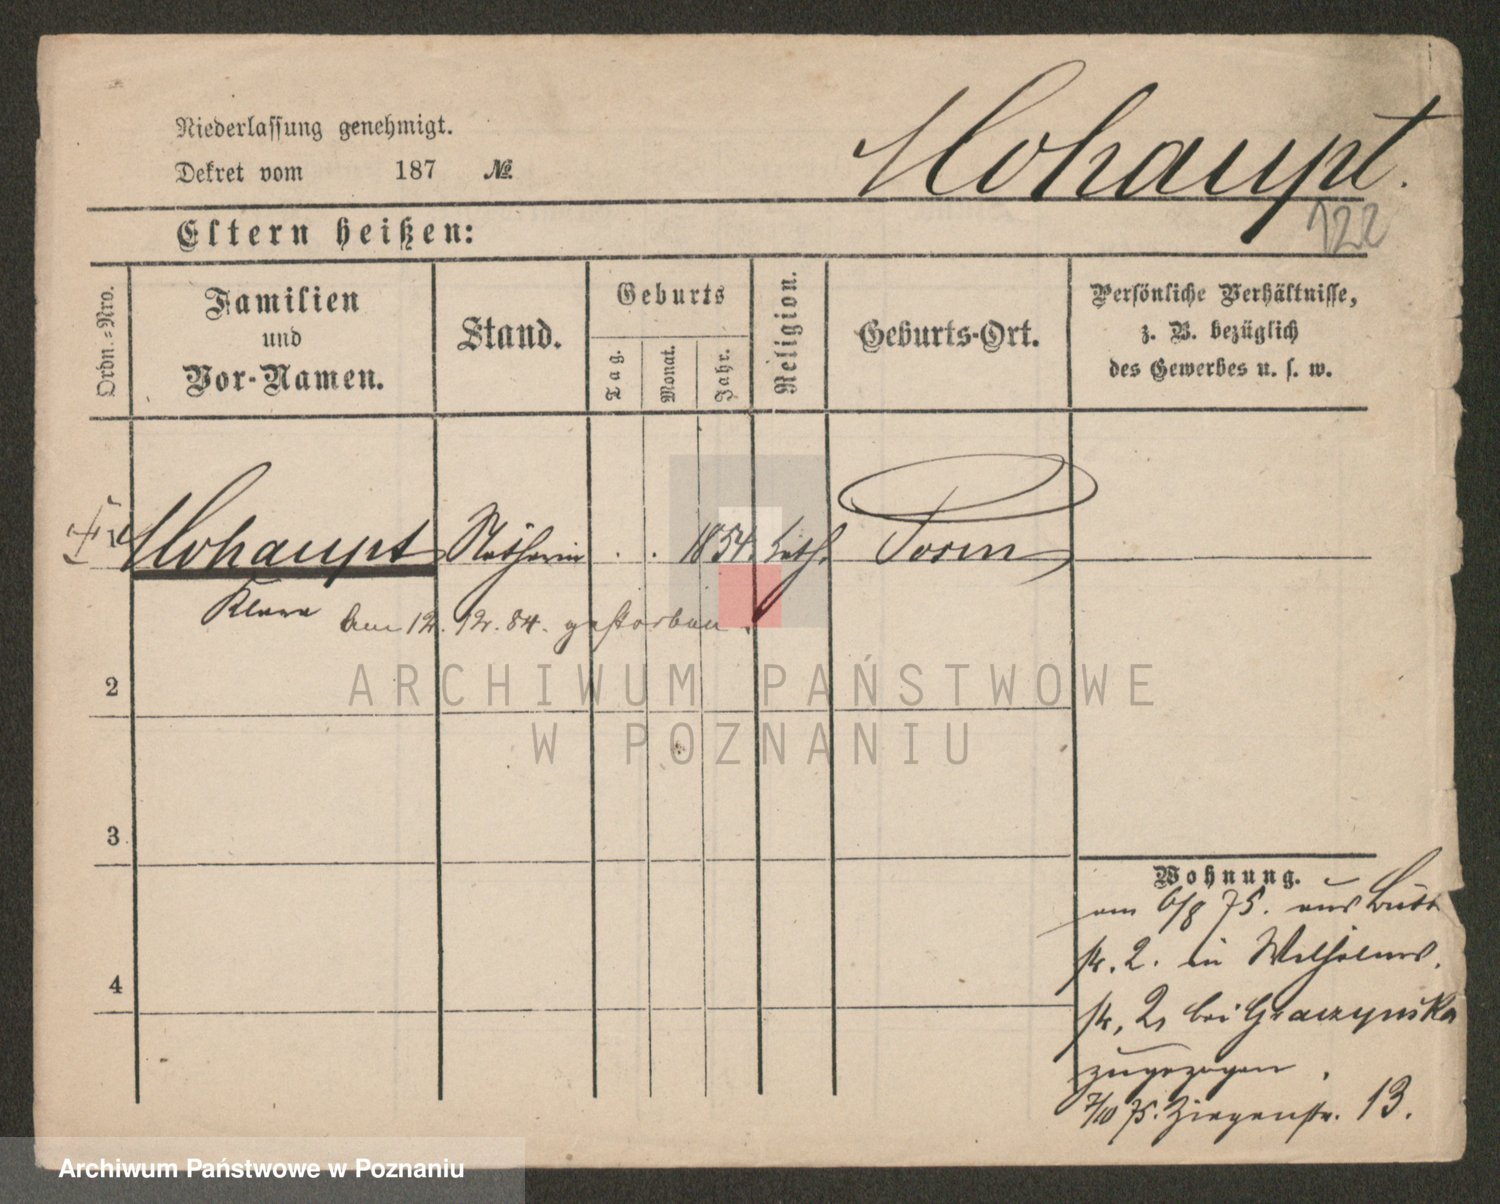 Niederlassung genehmigt.
Dekret vom 187 №
Mohaupt.
122
Eltern heißen:
Ordn.-Nro.
Familien
und
Vor-Namen.
Stand.
Geburts
Tag.
Monat.
Jahr.
Religion.
Geburts-Ort.
Persönliche Verhältnisse,
z. B. bezüglich
des Gewerbes u. s. w.
Mohaupt Näherin . . 1854. kath. Posen
Klara am 12. 12. 84. gestorben.
2
3
4
Wohnung.
am 6/8 75. aus
str. 2. in Wilhelms.
str. 2, bei Graczynska
zugezogen.
7/10 75. Ziegenstr. 13.
ARCHIWUM PAŃSTWOWE
W POZNANIU
Archiwum Państwowe w Poznaniu